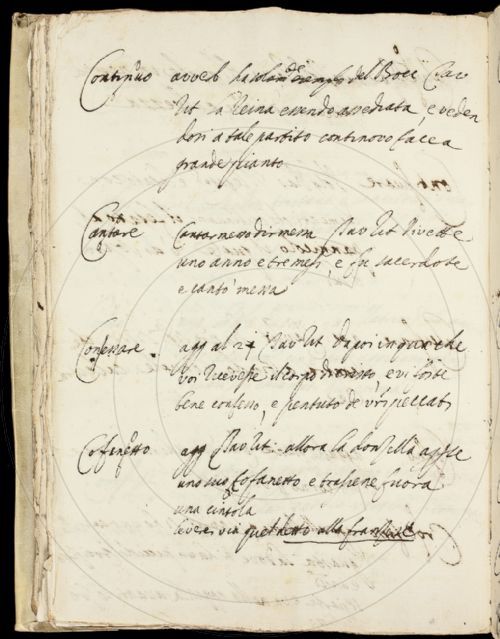 Continuo avverb ha solam de esempio del Bocc Tav
Rit la Reina essendo assediata, e veden
dosi a tale partito continovo facea
grande pianto
Cantare Cantar messa dir messa Tav Rit vivette
uno anno e tre mesi, e fu sacerdote
e cantò messa
Confessare. agg al 24 Tav Rit dapoi in qua che
voi riceveste il corpo di cristo e vi foste
bene confesso, e pentuto de' vri peccati
Cofanetto agg Tav Rit. allora la donzella aprse
uno suo cofanetto e trassene fuora
una cintola
levere via quel detto alla franzese